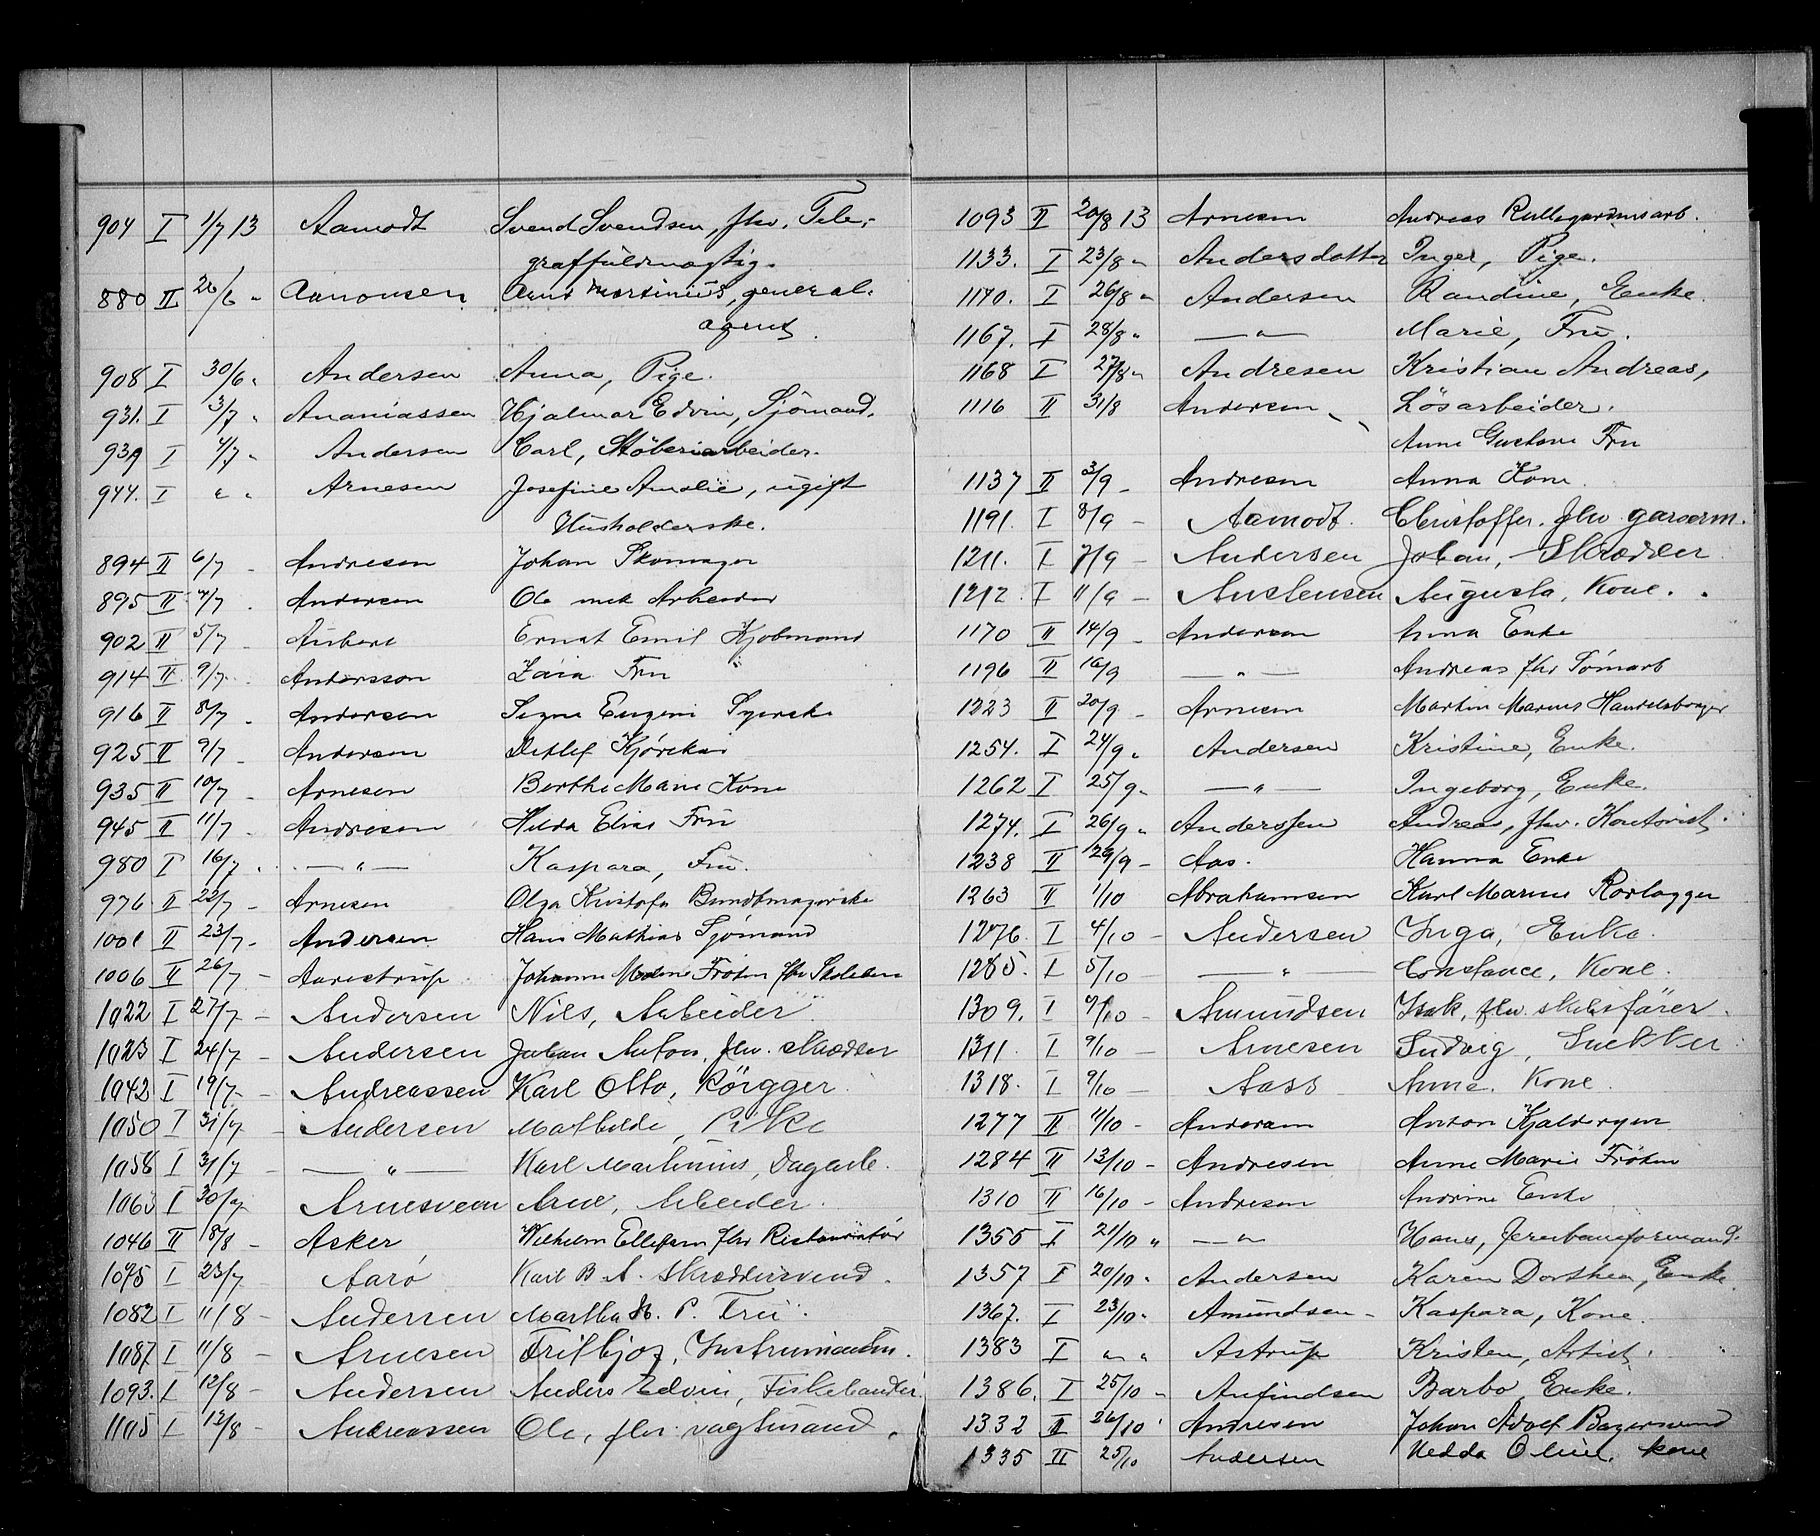 904 I 1/7 13 Aamodt Svend Svendsen, fhv. Tele-
graffuldmægtig.
880 II 26/6 " Aanonsen, Arnt Martinius, general-
agent.
908 I 30/6 " Andersen Anna, Pige.
931. I 3/7 " Ananiassen Hjalmar Edvin, Sjömand.
939 I 4/7 " Andersen Carl, Stöberiarbeider.
944. I " " Arnesen Josefine Amalie, ugift
Husholderske.
894 II 6/7 - Andresen Johan Skomager
895 II 4/7 - Andersen Ole Arbeider
902 II 5/7 - Aubert Ernst Emil Kjøbmand
914 II 9/7 - Andersson Fru
916 II 8/7 - Andersen Signe Eugeni Syerske
925 II 9/7 - Andersen Detlef
935 II 10/7 - Arnesen Berthe Marie Kone
945 II 11/7 - Andresen Hilda Elise Fru
980 I 16/7 " — " — Kaspara, Fru.
976 II 22/7 - Arnesen Olga Kristofa Bundtmagerske
1001 II 23/7 - Andersen Hans Mathias Sjömand
1006 II 26/7 - Aarestrup Johanne Frøken fhv
1022 I 27/7 - Andersen Nils, Arbeider
1023 I 24/7 - Andersen Johan Anton, fhv. skrædder
1042 I 19/7 - Andreassen Karl Otto, Rörlægger
1050 I 31/7 - Andersen Mathilde, Pike
1058 I 31/7 - — " — Karl Martinius, Dagarb.
1063 I 30/7 - Arnesveen Arne, Arbeider.
1046 II 18/8 - Asker Wilhelm Ellefsen fhv Restauratør
1075 I 23/7 - Aarö Karl B. A. skræddersvend.
1082 I 11/8 - Andersen Martha P. Fru.
1087 I 11/8 - Arnesen Fritbjof, Instrum
1093. I 12/8 - Andersen Anders Edvin, Fiskehandler
1105 I 12/8 - Andreassen Ole, fhv. vagtmand.
1093 II 20/8 13 Arnesen Andreas Rullegardinsarb.
1133. I 23/8 " Andersdatter Inger, Pige.
1140. I 26/8 " Andersen Randine, Enke.
1167. I 28/8 " — " — Marie, Fru.
1168 I 27/8 " Andresen Kristian Andreas,
1116 II 31/8 Andersen Lösarbeider.
Anne Gustava Fru
1137 II 3/9 - Andresen Anna Kone.
1191. I 8/9 - Aamodt. Christoffer. fhv. garverm.
1211. I 7/9 - Andersen Johan, Skrædder
1212. I 11/9 - Austensen Augusta, Kone.
1170 II 14/9 - Andersen Anna Enke
1196 II 16/9 — " — Andreas fhv Tömarb
1223 II 20/9 - Arnesen Martin Marius Handelsborger
1254. I 24/9 " Andersen Kristine, Enke.
1262 I 25/9 " — " — Ingeborg, Enke.
1274. I 26/9 " Anderssen Andreas, fhv. Kontorist.
1238 II 29/9 - Aas. Hanna Enke
1263 II 1/10 Abrahamsen Karl Marius Rørlægger
1276. I 4/10 - Andersen Inga, Enke.
1285. I 5/10 - — " — Constance, Kone.
1309. I 9/10 - Amundsen Isak, fhv. skibsförer.
1311. I 9/10 - Arnesen Ludvig, Snekker
1318. I 9/10 - Aass Anne. Kone.
1277 II 11/10 - Andersen Anton
1284 II 13/10 - Andresen Anne Marie Frøken
1310 II 16/10 - Andresen Andrine Enke
1355 I 21/10 " — " — Hans, Jernbaneformand.
1357 I 20/10 " Andersen Karen Dorthea, Enke
1367. I 23/10 " Amundsen - Kaspara, Kone.
1383 I " " Astrup Kristen, Artist.
1386. I 25/10 " Anfindsen Barbo, Enke.
1332 II 26/10 ' Andresen Johan Adolf Bagersvend
1335 II 25/10 Andersen Hedda Oline. kone